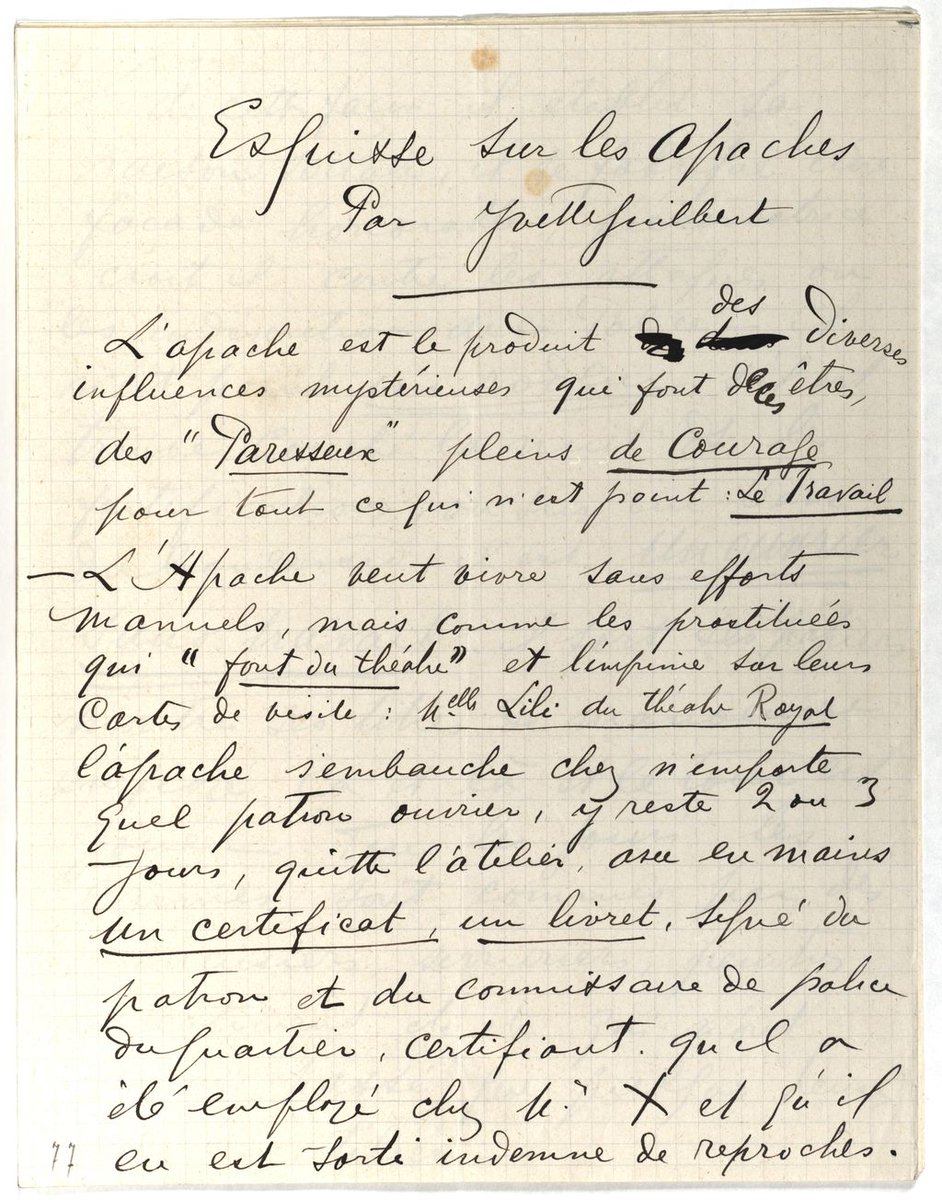 Esquisse sur les Apaches
Par Yvette Guilbert
des
L'apache est le produit diverses
influences mystérieuses qui font de ces êtres,
des "Paresseux" pleins de Courage
pour tout ce qui n'est point : Le Travail
— L'Apache veut vivre sans efforts
manuels, mais comme les prostituées
qui "font du théatre" et l'imprime sur leurs
Cartes de visite : Melle Lili du théatre Royal
l'apache s'embauche chez n'emporte
quel patron ouvrier, y reste 2 ou 3
jours, quitte l'atelier, avec en mains
un certificat, un livret, signé du
patron et du commissaire de police
du quartier, certifiant. qu'il a
été employé chez Mr X et qu'il
en est sorti indemne de reproches.
77